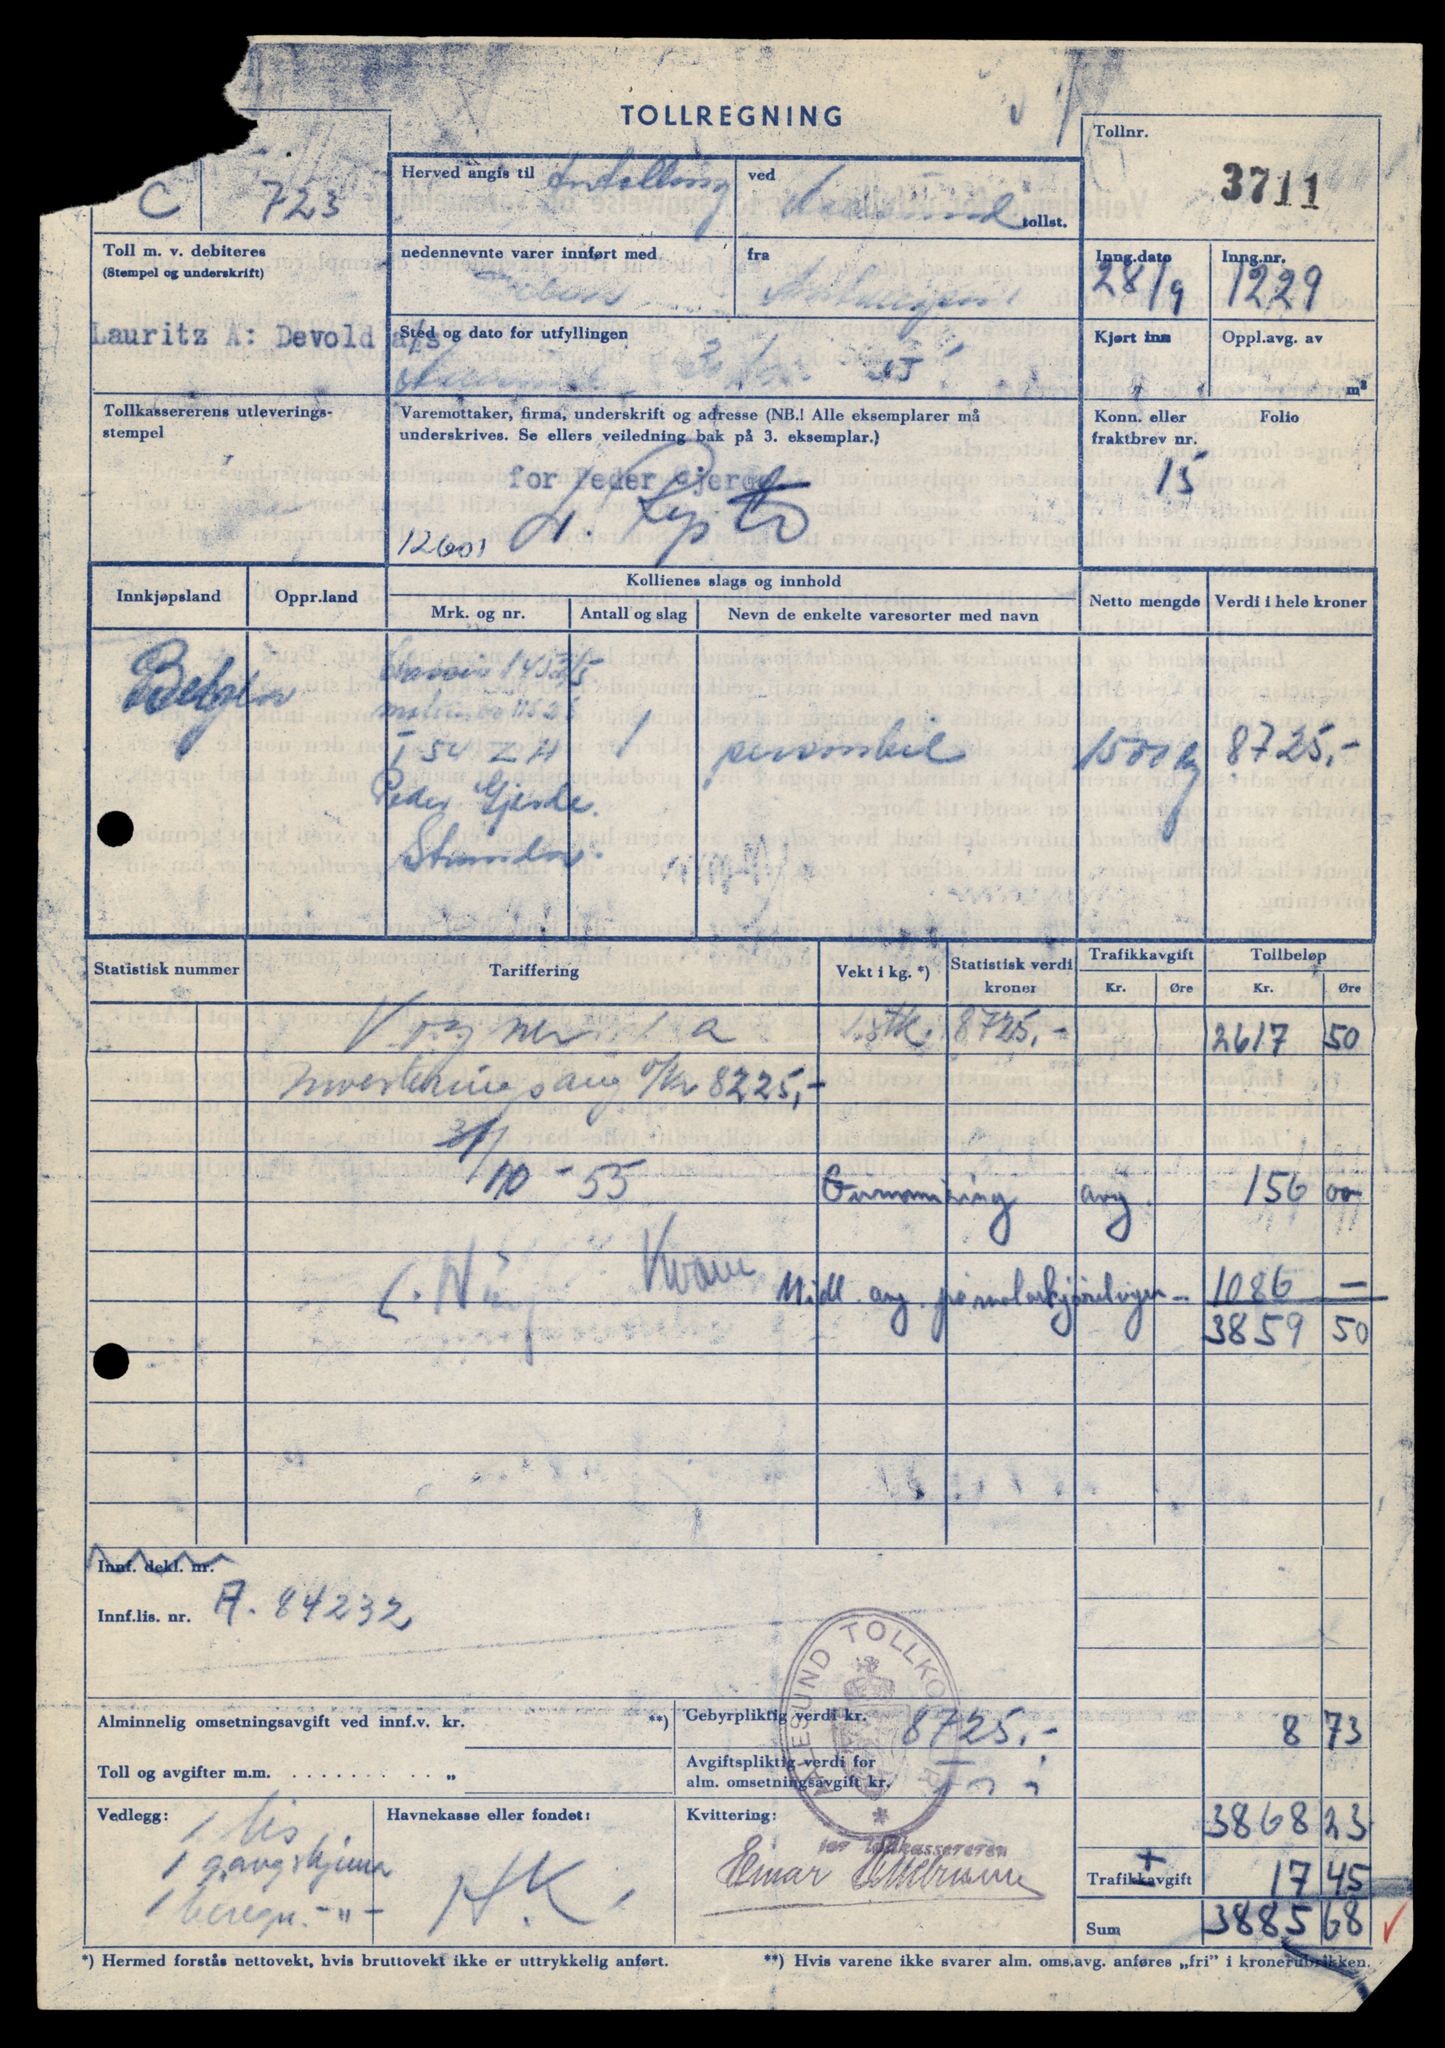 TOLLREGNING
Tollnr.
3711
C 723
Herved angis til
ved
tollst.
Toll m. v. debiteres
(Stempel og underskrift)
Lauritz A: Devold a/s
nedennevnte varer innført med
fra
Inng.dato
28/9
Inng.nr.
1229
Sted og dato for utfyllingen
Kjørt inn
Oppl.avg. av
m²
Tollkassererens utleverings-
stempel
Varemottaker, firma, underskrift og adresse (NB.! Alle eksemplarer må
underskrives. Se ellers veiledning bak på 3. eksemplar.)
for Peder Gjerde
12601
Konn. eller
fraktbrev nr.
15
Folio
Innkjøpsland
Oppr.land
Kollienes slags og innhold
Mrk. og nr.
Antall og slag
Nevn de enkelte varesorter med navn
Netto mengde
Verdi i hele kroner
Belgia
T 54 Z H 1 personbil 1500 kg 8725,-
Peder Gjerde.
Stranda.
Statistisk nummer
Tariffering
Vekt i kg. *)
Statistisk verdi
kroner
Trafikkavgift
Kr. Øre
Tollbeløp
Kr. Øre
1 stk. 8725,- 2617 50
Investerings avg 8225,-
31/
10 - 55 Gummiring avg. 156 00
Kvam Midl. avg. på 1086 —
3859 50
Innf. dekl. nr.
Innf.lis. nr. A. 84232
AALESUND TOLLKO
Alminnelig omsetningsavgift ved innf.v. kr. **)
Gebyrpliktig verdi kr. 8725,- 8 73
Toll og avgifter m.m. . . . . . . . . . „
Avgiftspliktig verdi for
alm. omsetningsavgift kr.
Vedlegg:
1 lis
1 gangskjema
1 beregn. -"-
Havnekasse eller fondet:
H.K.
Kvittering:
for tollkassereren
Einar
3868 23
+
Trafikkavgift 17 45
Sum 3885 68
*) Hermed forstås nettovekt, hvis bruttovekt ikke er uttrykkelig anført.
**) Hvis varene ikke svarer alm. oms.avg. anføres „fri” i kronerubrikken.